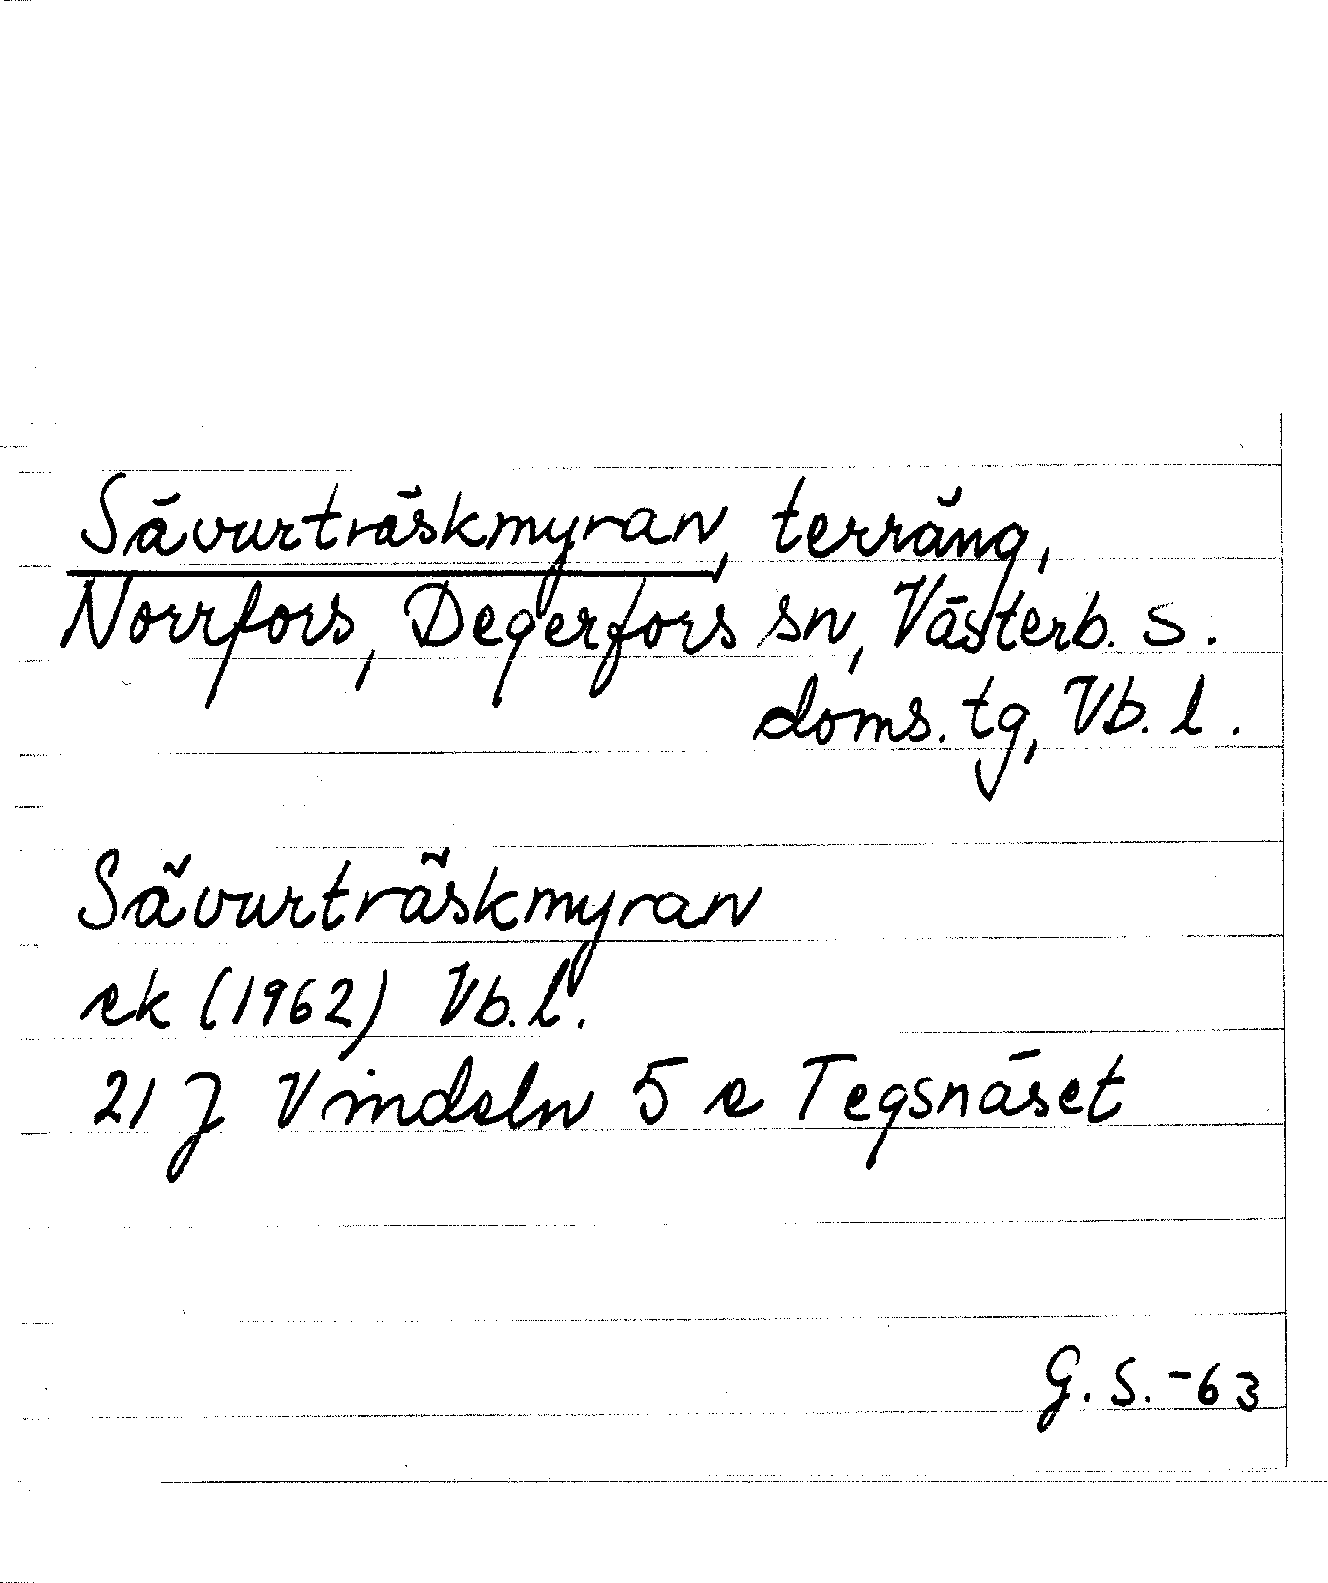 Sävurträskmyran, terräng,
Norrfors, Degerfors sn, Västerb. s.
doms. tg, Vb. l.
Sävurträskmyran
ek (1962) Vb. l.
21 J Vindeln 5 e Tegsnäset
G. S. -63